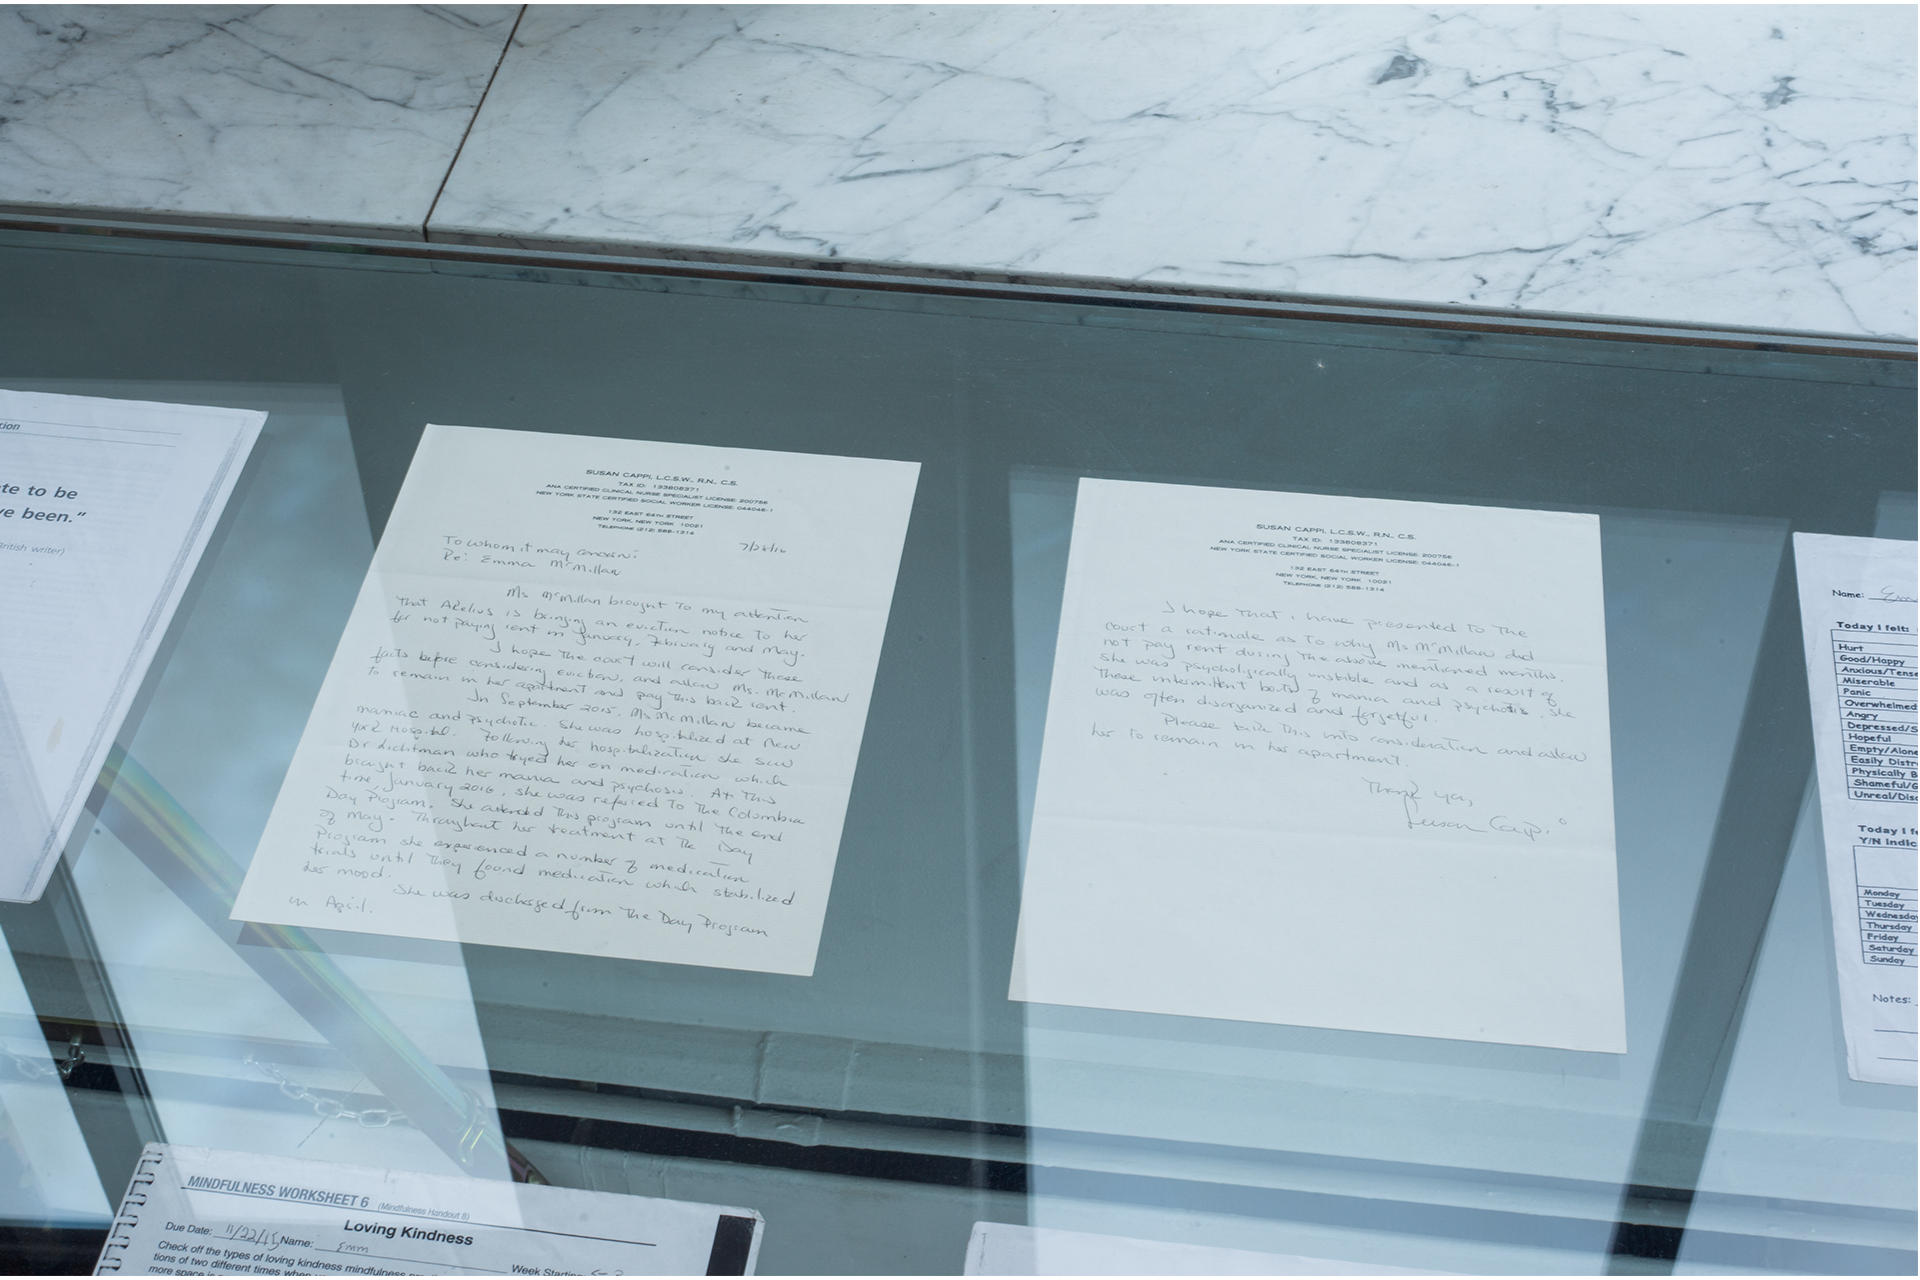 tion
te to be
ve been."
British writer)
SUSAN CAPPI, L.C.S.W., R.N., C.S.
TAX ID: 133808371
ANA CERTIFIED CLINICAL NURSE SPECIALIST LICENSE: 200756
NEW YORK STATE CERTIFIED SOCIAL WORKER LICENSE: 044046-1
132 EAST 64TH STREET
NEW YORK, NEW YORK 10021
TELEPHONE (212) 588-1314
7/28/16
To whom it may concern:
Re: Emma McMillan
Ms McMillan brought to my attention
that Arelius is bringing an eviction notice to her
for not paying rent in January, February and May.
I hope the court will consider these
facts before considering eviction, and allow Ms. McMillan
to remain in her apartment and pay this back rent.
In September 2015, Ms McMillan became
maniac and psychotic. She was hospitalized at New
York Hospital. Following her hospitalization she saw
Dr Lichtman who tryed her on medication which
brought back her mania and psychosis. At this
time January 2016, she was referred to the Columbia
Day Program. She attended this program until the end
of May. Throughout her treatment at the Day
Program she experienced a number of medication
trials until they found medication which stabilized
her mood.
She was discharged from the Day Program
in April.
SUSAN CAPPI, L.C.S.W., R.N., C.S.
TAX ID: 133808371
ANA CERTIFIED CLINICAL NURSE SPECIALIST LICENSE: 200756
NEW YORK STATE CERTIFIED SOCIAL WORKER LICENSE: 044046-1
132 EAST 64TH STREET
NEW YORK, NEW YORK 10021
TELEPHONE (212) 588-1314
I hope that I have presented to the
court a rationale as to why Ms McMillan did
not pay rent during the above mentioned months.
She was psychologically unstible and as a result of
these intermittent bouts of mania and psychosis, she
was often disorganized and forgetful.
Please take this into consideration and allow
her to remain in her apartment.
Thank you,
Susan Cappi
Name: Em
Today I felt:
Hurt
Good/Happy
Anxious/Tense
Miserable
Panic
Overwhelmed
Angry
Depressed/S
Hopeful
Empty/Alone
Easily Distr
Physically
Shameful/G
Unreal/Dis
Today I fe
Y/N indic
Monday
Tuesday
Wednesday
Thursday
Friday
Saturday
Sunday
Notes:
MINDFULNESS WORKSHEET 6 (Mindfulness Handout 8)
Loving Kindness
Due Date: 11/22/15 Name: Emm Week Starting:
Check off the types of loving kindness mindfulness
tions of two different times when
more space is